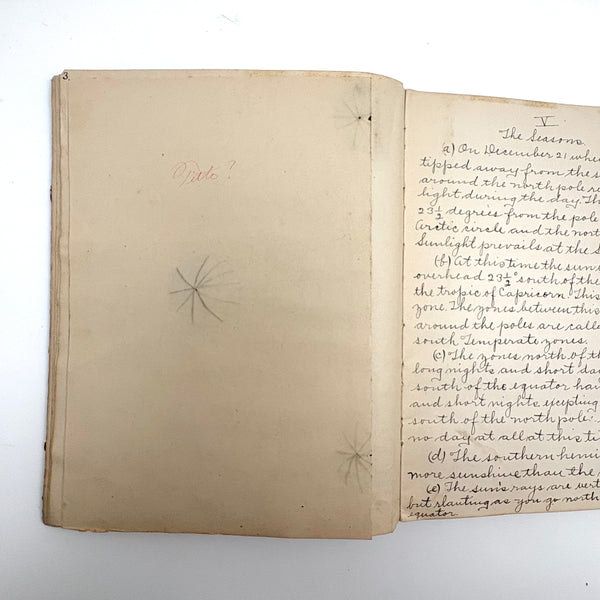 3.
Title?
V
The Seasons
a) On December 21 whe
tipped away from the s
around the north pole re
light during the day. Th
23 1/2 degrees from the pole
Arctic circle and the nort
Sunlight prevails at the S
(b) At this time the sun is
overhead 23 1/2° south of the
the tropic of Capricorn. This
zone. The zones between this
around the poles are calle
south Temperate zones.
(c) The zones north of th
long nights and short day
south of the equator hav
and short nights excepting
south of the north pole.
no day at all at this ti
(d) The southern hemi
more sunshine than the
(e) The sun's rays are vert
but slanting as you go north
equator.